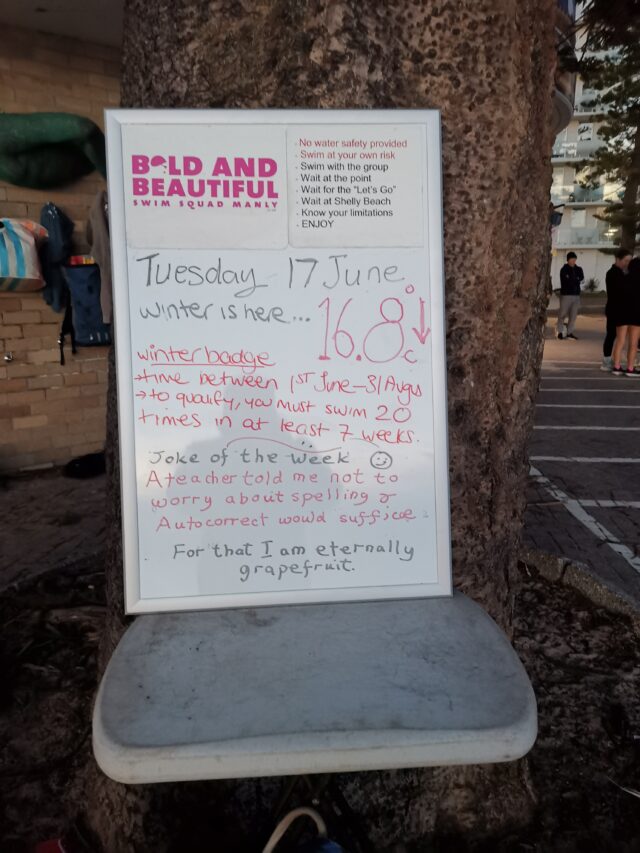 BOLD AND
BEAUTIFUL
SWIM SQUAD MANLY
- No water safety provided
- Swim at your own risk
- Swim with the group
- Wait at the point
- Wait for the "Let's Go"
- Wait at Shelly Beach
- Know your limitations
- ENJOY
Tuesday 17 June
Winter is here... 16.8°C ↓
winter badge
→ time between 1ST June-31 Augus
→ to qualify, you must swim 20
times in at least 7 weeks.
Joke of the week ☺
A teacher told me not to
worry about spelling &
Autocorrect would suffice
For that I am eternally
grapefruit.